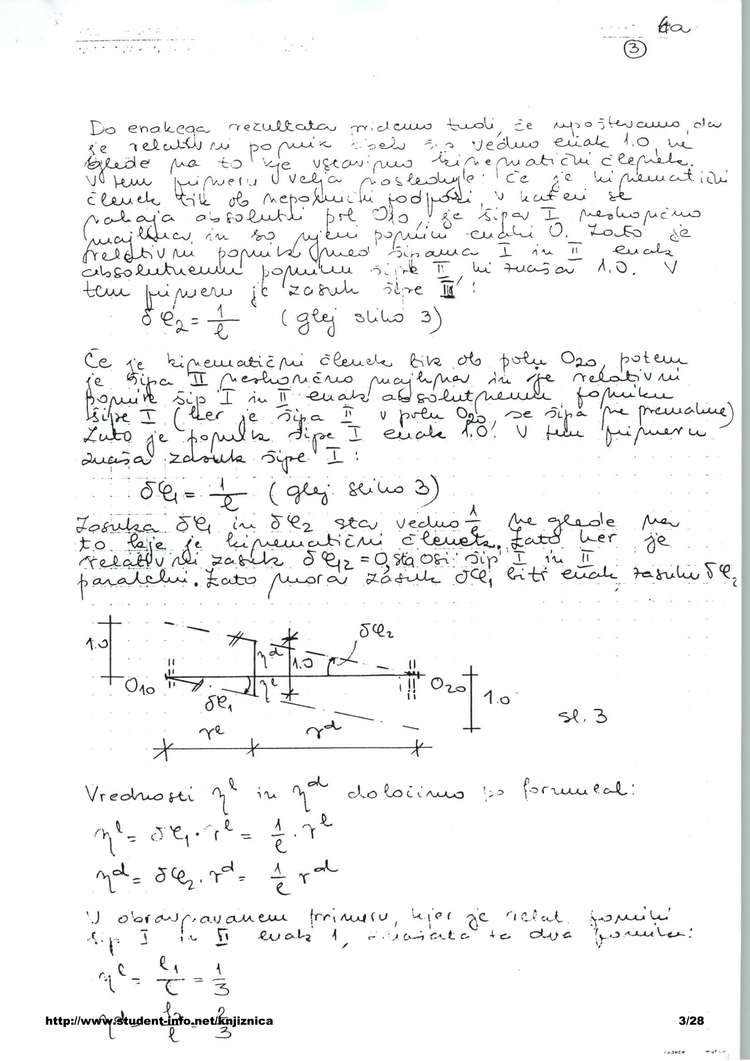 4a
3
Do enakega rezultata pridemo tudi, če upoštevamo, da
je relativni pomik obeh šip vedno enak 1.0, ne
glede na to kje vstavimo kinematični členek.
V tem primeru velja naslednje: če je kinematični
členek tik ob nepomični podpori, v kateri se
nahaja absolutni pol O10, je šipa I neskončno
majhna in so njeni pomiki enaki 0. Zato je
relativni pomik med šipama I in II enak
absolutnemu pomiku šipe II, ki znaša 1.0. V
tem primeru je zasuk šipe II:
δφ2 = 1/l (glej sliko 3)
Če je kinematični členek tik ob polu O20, potem
je šipa II neskončno majhna in je relativni
pomik šip I in II enak absolutnemu pomiku
šipe I (ker je šipa II v polu O20, se šipa ne premakne)
Zato je pomik šipe I enak 1.0. V tem primeru
znaša zasuk šipe I:
δφ1 = 1/l (glej sliko 3)
Zasuka δφ1 in δφ2 sta vedno 1/l ne glede na
to kje je kinematični členek. Zato ker je
relativni zasuk δφ12 = 0, sta osi šip I in II
paralelni. Zato mora zasuk δφ1 biti enak zasuku δφ2
1.0
δφ2
ηd
1.0
O10
ηl
O20
δφ1
1.0
rl
rd
sl. 3
Vrednosti ηl in ηd določimo po formulah:
ηl = δφ1 · rl = 1/l · rl
ηd = δφ2 · rd = 1/l rd
V obravnavanem primeru, kjer je relat. pomik
šip I in II enak 1, znašata ta dva pomika:
ηl = l1/l = 1/3
ηd = l2/l = 2/3
http://www.student-info.net/knjiznica
3/28